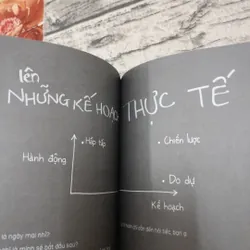 lên
NHỮNG KẾ HOẠCH THỰC TẾ
Hấp tấp
Chiến lược
Hành động
Do dự
Kế hoạch
là ngày mai nhỉ?
mình sẽ bắt đầu sau?